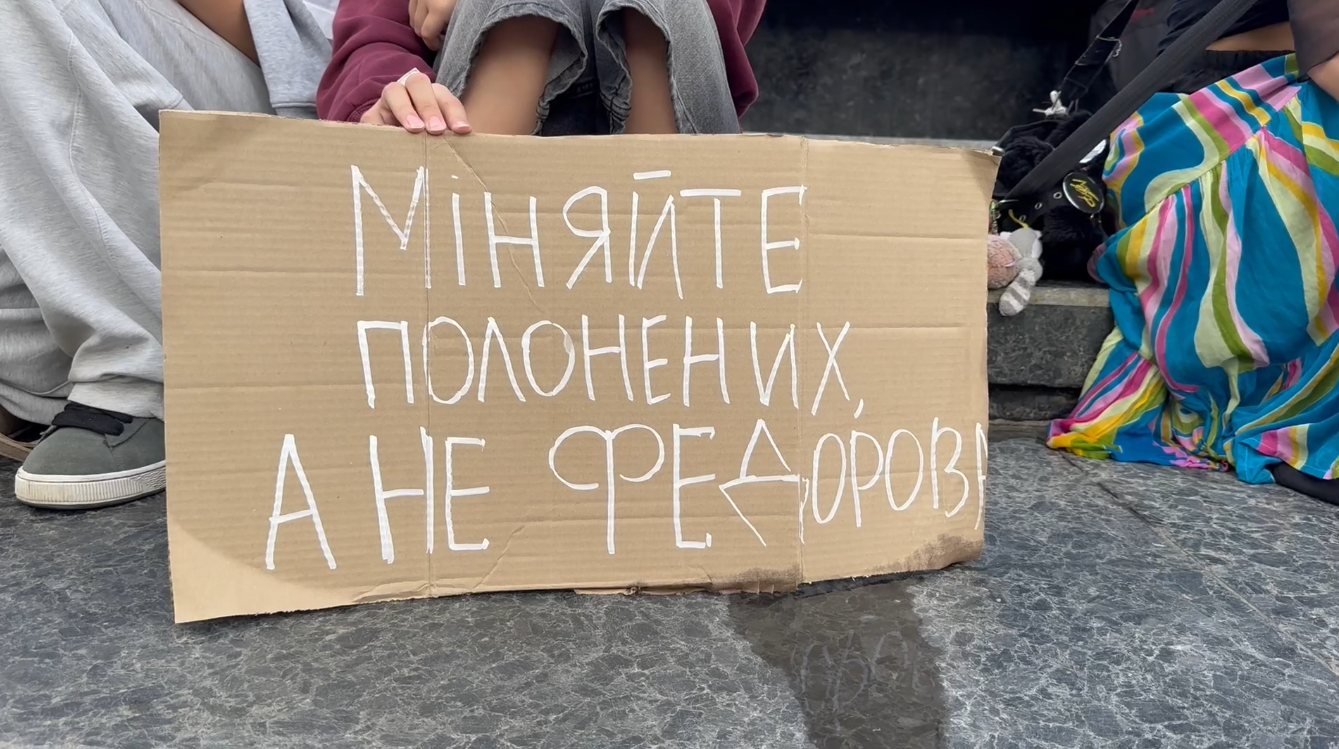 МІНЯЙТЕ
ПОЛОНЕНИХ,
А НЕ ФЕДОРОВА